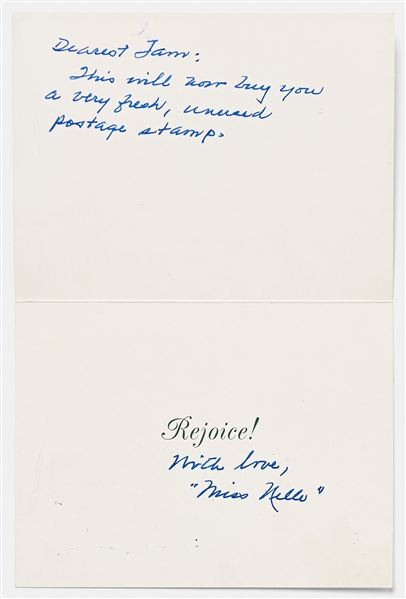 Dearest Tam:
This will now buy you
a very fresh, unused
postage stamp.
Rejoice!
With love,
"Miss Nelle"